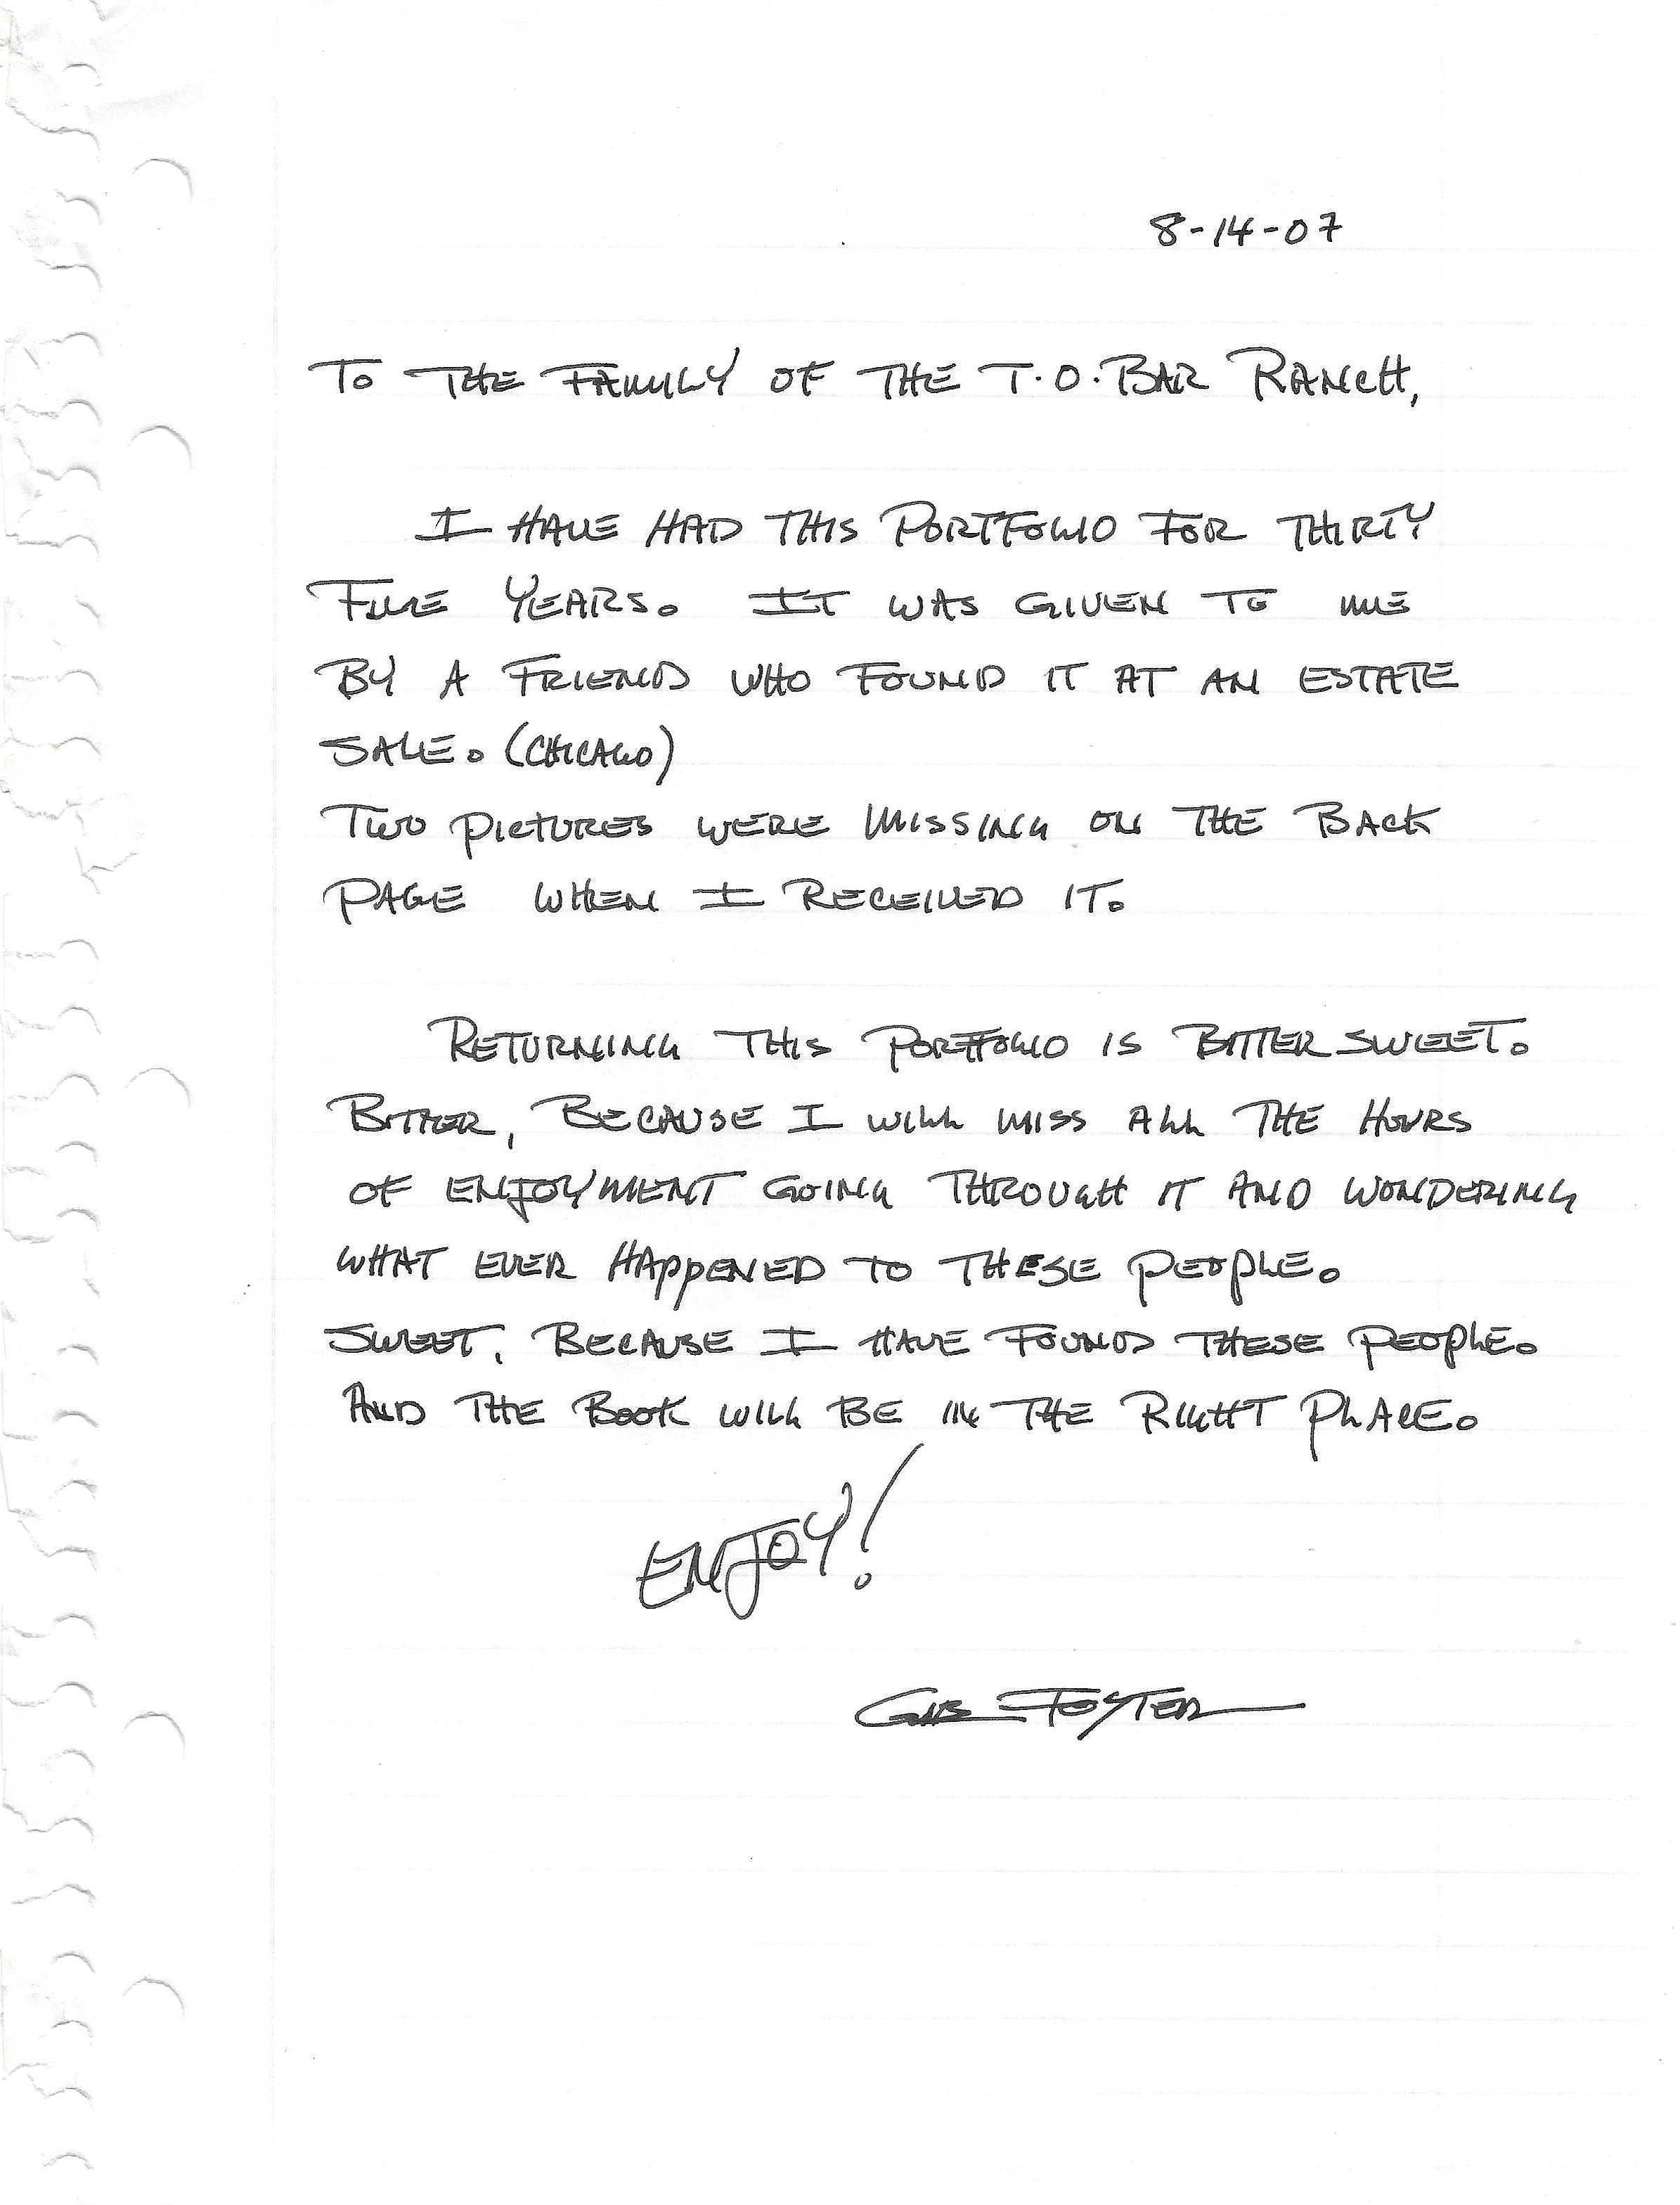 8-14-07
TO THE FAMILY OF THE T.O. BAR RANCH,
I HAVE HAD THIS PORTFOLIO FOR THIRTY
FIVE YEARS. IT WAS GIVEN TO ME
BY A FRIEND WHO FOUND IT AT AN ESTATE
SALE. (CHICAGO)
TWO PICTURES WERE MISSING ON THE BACK
PAGE WHEN I RECEIVED IT.
RETURNING THIS PORTFOLIO IS BITTER SWEET.
BITTER, BECAUSE I WILL MISS ALL THE HOURS
OF ENJOYMENT GOING THROUGH IT AND WONDERING
WHAT EVER HAPPENED TO THESE PEOPLE.
SWEET, BECAUSE I HAVE FOUND THESE PEOPLE.
AND THE BOOK WILL BE IN THE RIGHT PLACE.
ENJOY!
FOSTER